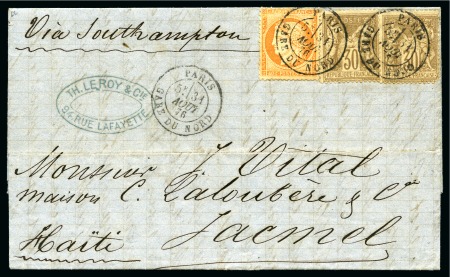 Via Southampton
TH. LEROY & CIE
84, RUE LAFAYETTE
PARIS
5E/31
AOUT
76
GARE DU NORD
PARIS
GARE DU NORD
30
PARIS
GARE DU NORD
Monsieur J. Vital
maison C. Laloubère & Cie
Haïti Jacmel